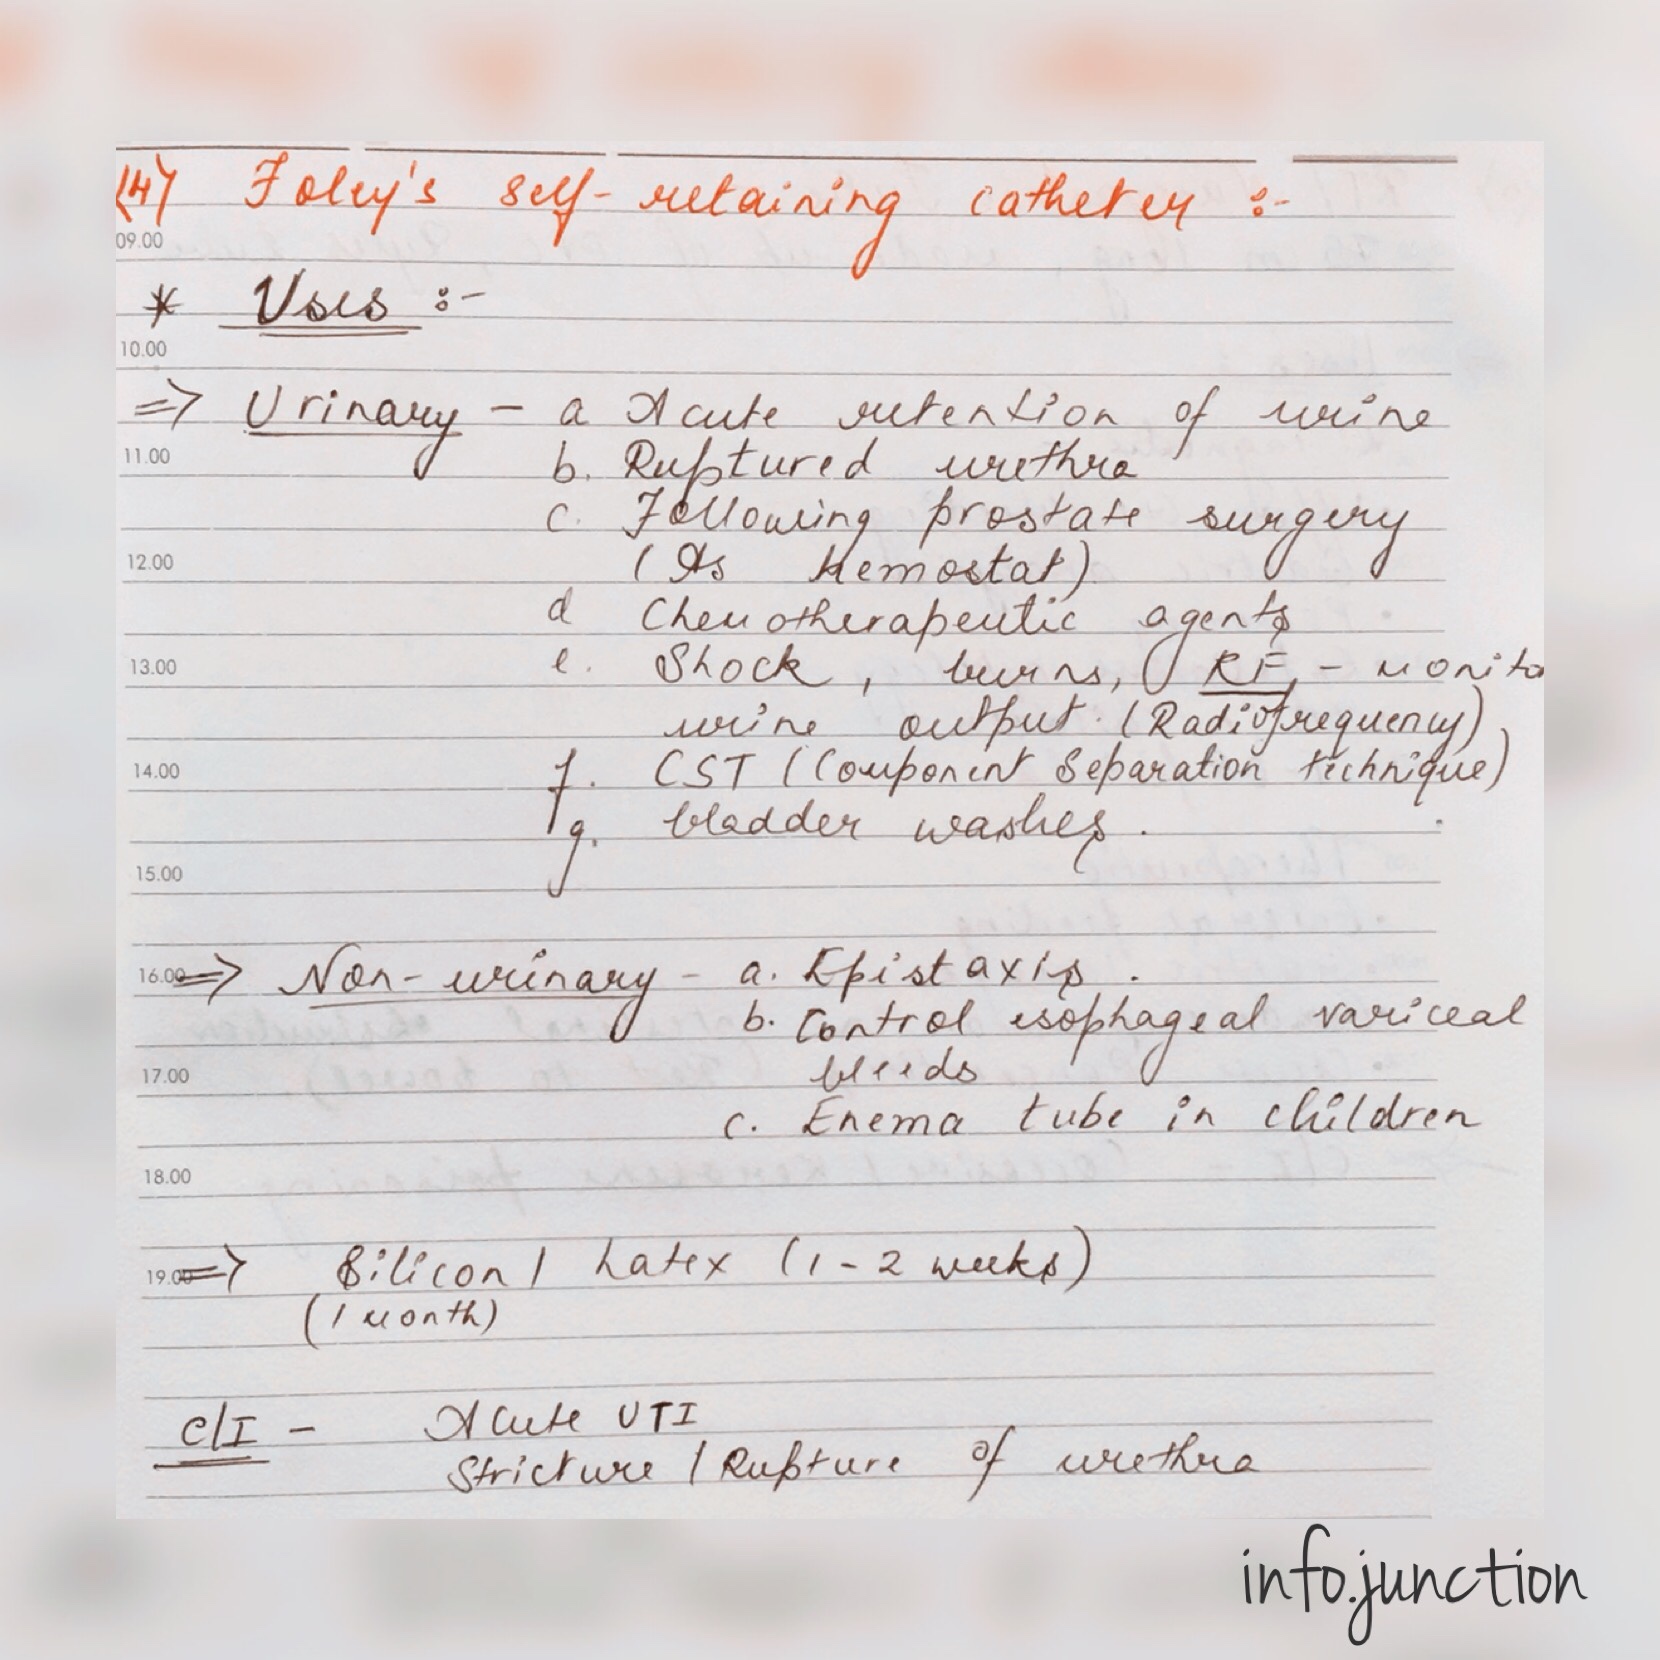 (4) Foley's self-retaining catheter :-
09.00
* Uses :-
10.00
⇒ Urinary - a Acute retention of urine
11.00
b. Ruptured urethra
c. Following prostate surgery
12.00
(As hemostat)
d Chemotherapeutic agents
13.00
e. Shock, burns, RF, - monito
urine output. (Radiofrequency)
14.00
f. CST (Component Separation technique)
g. bladder washes.
15.00
16.00 ⇒ Non-urinary - a. Epistaxis.
b. Control esophageal variceal
17.00
bleeds
c. Enema tube in children
18.00
19.00 ⇒ Silicon / Latex (1-2 weeks)
(1 month)
C/I - Acute UTI
Stricture / Rupture of urethra
info.junction